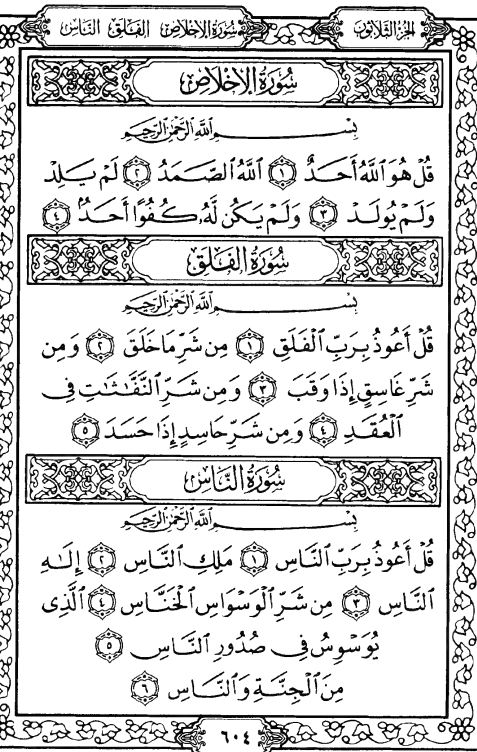 الجزء الثلاثون سورة الإخلاص الفلق الناس
سُورَةُ الإِخْلَاصِ
بِسْمِ اللَّهِ الرَّحْمَٰنِ الرَّحِيمِ
قُلْ هُوَ اللَّهُ أَحَدٌ ١ اللَّهُ الصَّمَدُ ٢ لَمْ يَلِدْ
وَلَمْ يُولَدْ ٣ وَلَمْ يَكُن لَّهُۥ كُفُوًا أَحَدٌۢ ٤
سُورَةُ الفَلَقِ
بِسْمِ اللَّهِ الرَّحْمَٰنِ الرَّحِيمِ
قُلْ أَعُوذُ بِرَبِّ الْفَلَقِ ١ مِن شَرِّ مَا خَلَقَ ٢ وَمِن
شَرِّ غَاسِقٍ إِذَا وَقَبَ ٣ وَمِن شَرِّ النَّفَّٰثَٰتِ فِى
الْعُقَدِ ٤ وَمِن شَرِّ حَاسِدٍ إِذَا حَسَدَ ٥
سُورَةُ النَّاسِ
بِسْمِ اللَّهِ الرَّحْمَٰنِ الرَّحِيمِ
قُلْ أَعُوذُ بِرَبِّ النَّاسِ ١ مَلِكِ النَّاسِ ٢ إِلَٰهِ
النَّاسِ ٣ مِن شَرِّ الْوَسْوَاسِ الْخَنَّاسِ ٤ الَّذِى
يُوَسْوِسُ فِى صُدُورِ النَّاسِ ٥
مِنَ الْجِنَّةِ وَالنَّاسِ ٦
٦٠٤